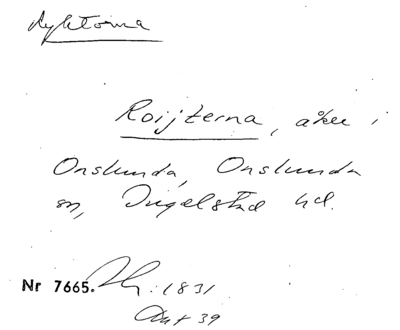 Ryktorna
Roijterna, åker i
Onslunda, Onslunda
sn, Ingelstad hd.
Nr 7665. 1831
Akt 39